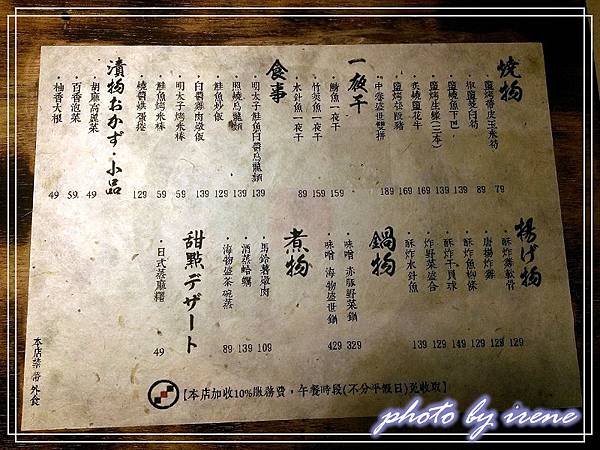 燒物
鹽烤帶皮玉米筍 79
椒鹽茭白筍 89
鹽燒魚下巴 139
鹽烤生蠔(三本) 139
炙燒鹽花牛 169
鹽烤松阪豬 169
中卷盛世雙拼 189
一夜干
鯖魚一夜干 159
竹筴魚一夜干 159
水針魚一夜干 89
食事
明太子鮭魚白醬烏龍麵 139
照燒烏龍麵 139
鮭魚炒飯 129
白醬雞肉燉飯 139
明太子烤米棒 59
鮭魚烤米棒 59
燒醬蛋捲 129
漬物おかず・小品
胡麻高麗菜 49
百香泡菜 59
柚香大根 49
揚げ物
酥炸雞軟骨 129
唐揚炸雞 129
酥炸魚柳條 129
酥炸干貝球 149
炸野菜盛合 129
酥炸水針魚 139
鍋物
味噌 赤豚野菜鍋 329
味噌 海物盛世鍋 429
煮物
馬鈴薯燉肉 109
酒蒸蛤蠣 139
海物盛茶碗蒸 89
甜點デザート
日式蒸麻糬 49
【本店加收10%服務費,午餐時段(不分平假日)免收取】
本店禁帶外食
photo by irene